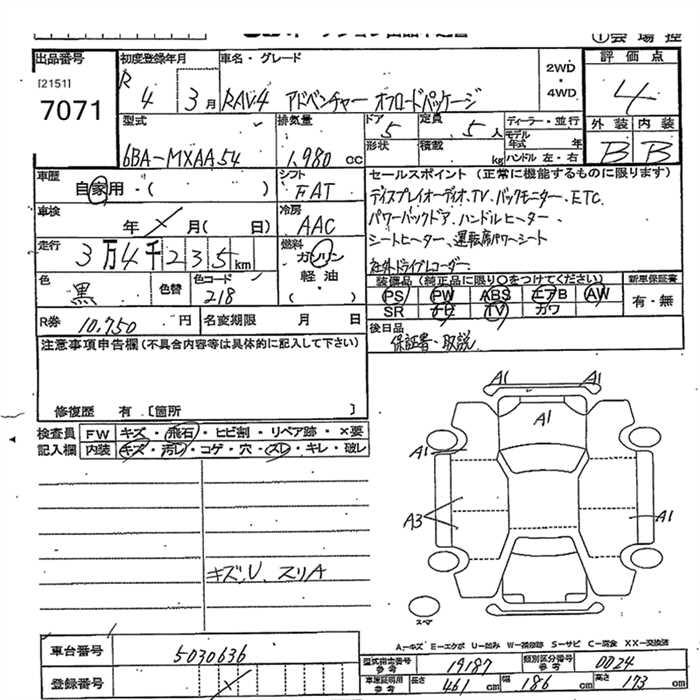 ① 会場控
出品番号 初度登録年月 車名・グレード 評価点
[2151] R 2WD
7071 4 3月 RAV4 アドベンチャー オフロードパッケージ ・ 4
4WD
型式 排気量 ドア 5 定員 5人 ディーラー・並行 外装 内装
6BA-MXAA54 1,980cc 形状 積載 kg モデル年式 年 B B
ハンドル 左・右
車歴 自家用・( ) シフト FAT セールスポイント(正常に機能するものに限ります)
ディスプレイオーディオ、TV、バックモニター、ETC、
車検 年 月( 日) 冷房 AAC パワーバックドア、ハンドルヒーター、
走行 3万4千235km 燃料 ガソリン シートヒーター、運転席パワーシート
軽油 社外ドライブレコーダー
色 黒 色替 色コード 218 ( ) 装備品(純正品に限り○をつけてください) 新車保証書
PS PW ABS エアB AW 有・無
R券 10,750円 名変期限 月 日 SR ナビ TV カワ
注意事項申告欄(不具合内容等は具体的に記入して下さい) 後日品
保証書・取説
修復歴 有 〔箇所 〕
検査員 FW キズ・飛石・ヒビ割・リペア跡・×要
記入欄 内装 キズ・汚レ・コゲ・穴・スレ・キレ・破レ
A1 A1
A1
A1
A3 A1
キズ、U、スリA
スペア
A…キズ E…エクボ U…凹み W…補修跡 S…サビ C…腐食 XX…交換済
車台番号 5030636 型式指定番号 参考 19187 類別区分番号 参考 0024
登録番号 車庫証明用 参考 長さ 461cm 幅 186cm 高さ 173cm